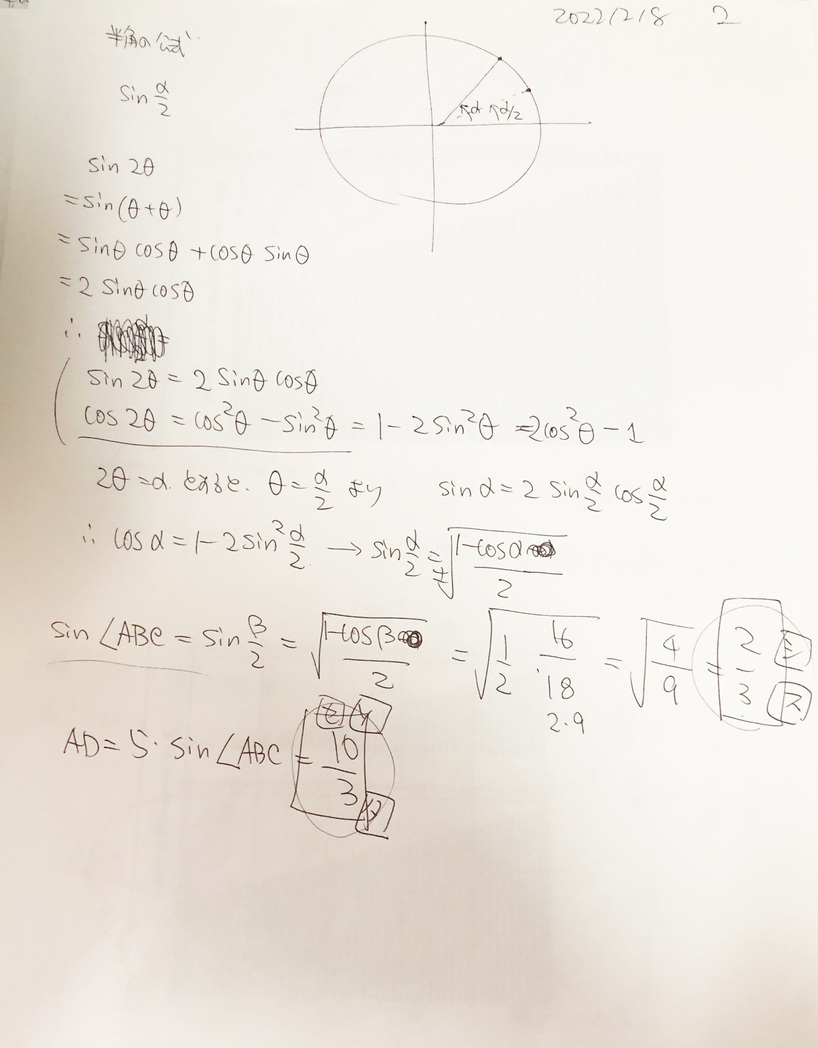 2022/2/8 2
半角の公式
sin α/2
α α/2
sin 2θ
= sin(θ+θ)
= sinθ cosθ + cosθ sinθ
= 2 sinθ cosθ
∴
sin 2θ = 2 sinθ cosθ
cos 2θ = cos²θ − sin²θ = 1 − 2 sin²θ = 2cos²θ − 1
2θ = α とおると. θ = α/2 より sin α = 2 sin α/2 cos α/2
∴ cos α = 1 − 2 sin² α/2 → sin α/2 = ±√((1−cos α)/2)
sin ∠ABC = sin β/2 = √((1−cos β)/2) = √(1/2 · 16/18) = √(4/9) = 2/3
2·9
AD = 5· sin ∠ABC = 10/3